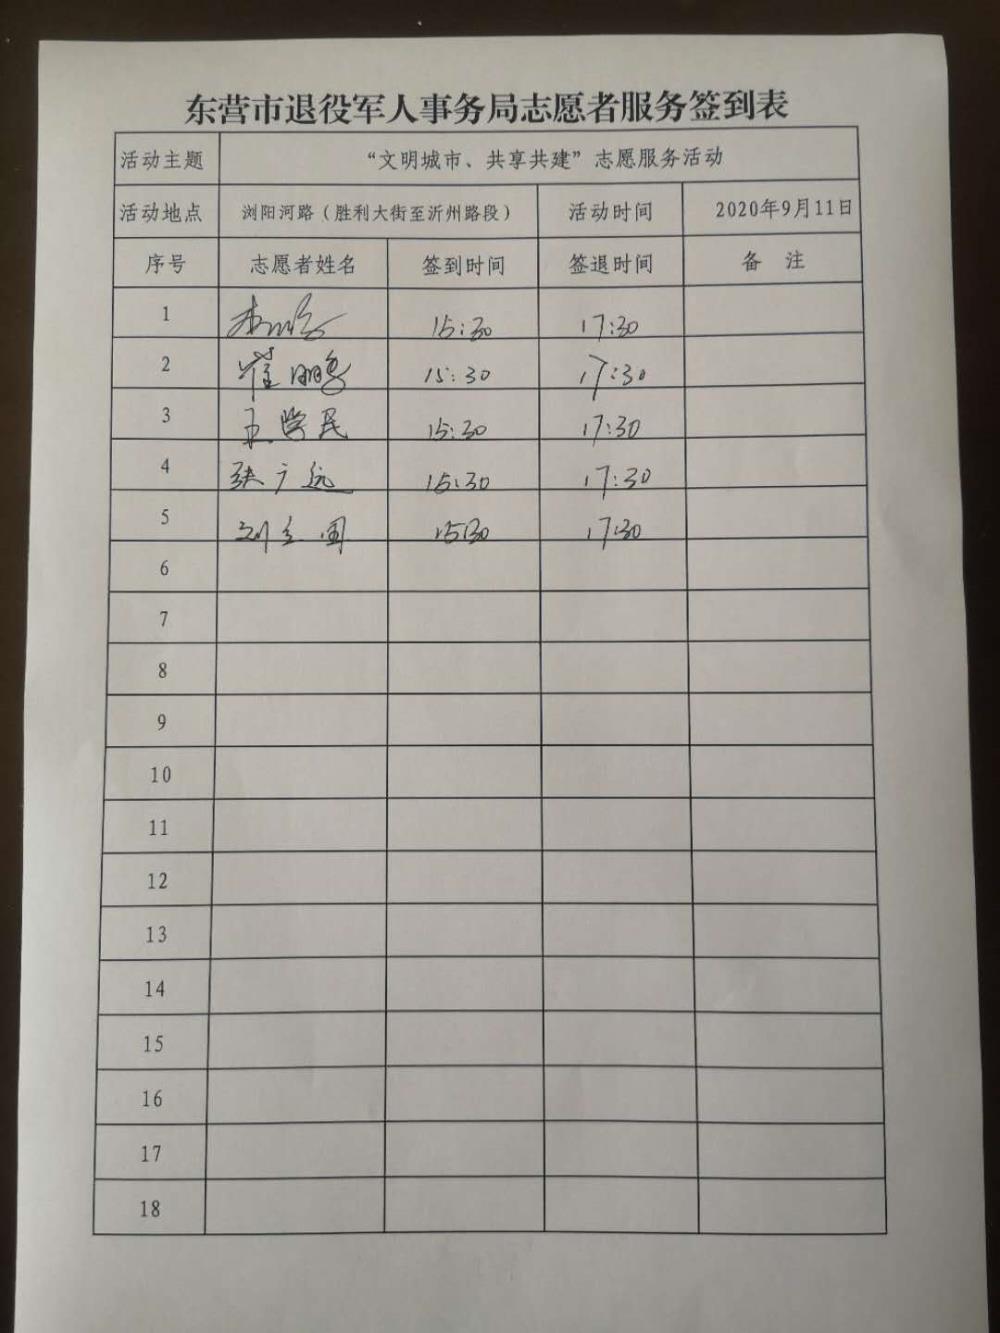 东营市退役军人事务局志愿者服务签到表
活动主题 “文明城市、共享共建”志愿服务活动
活动地点 浏阳河路（胜利大街至沂州路段） 活动时间 2020年9月11日
序号 志愿者姓名 签到时间 签退时间 备 注
1 15:30 17:30
2 崔鹏 15:30 17:30
3 王学民 15:30 17:30
4 张广远 15:30 17:30
5 刘立国 15:30 17:30
6
7
8
9
10
11
12
13
14
15
16
17
18